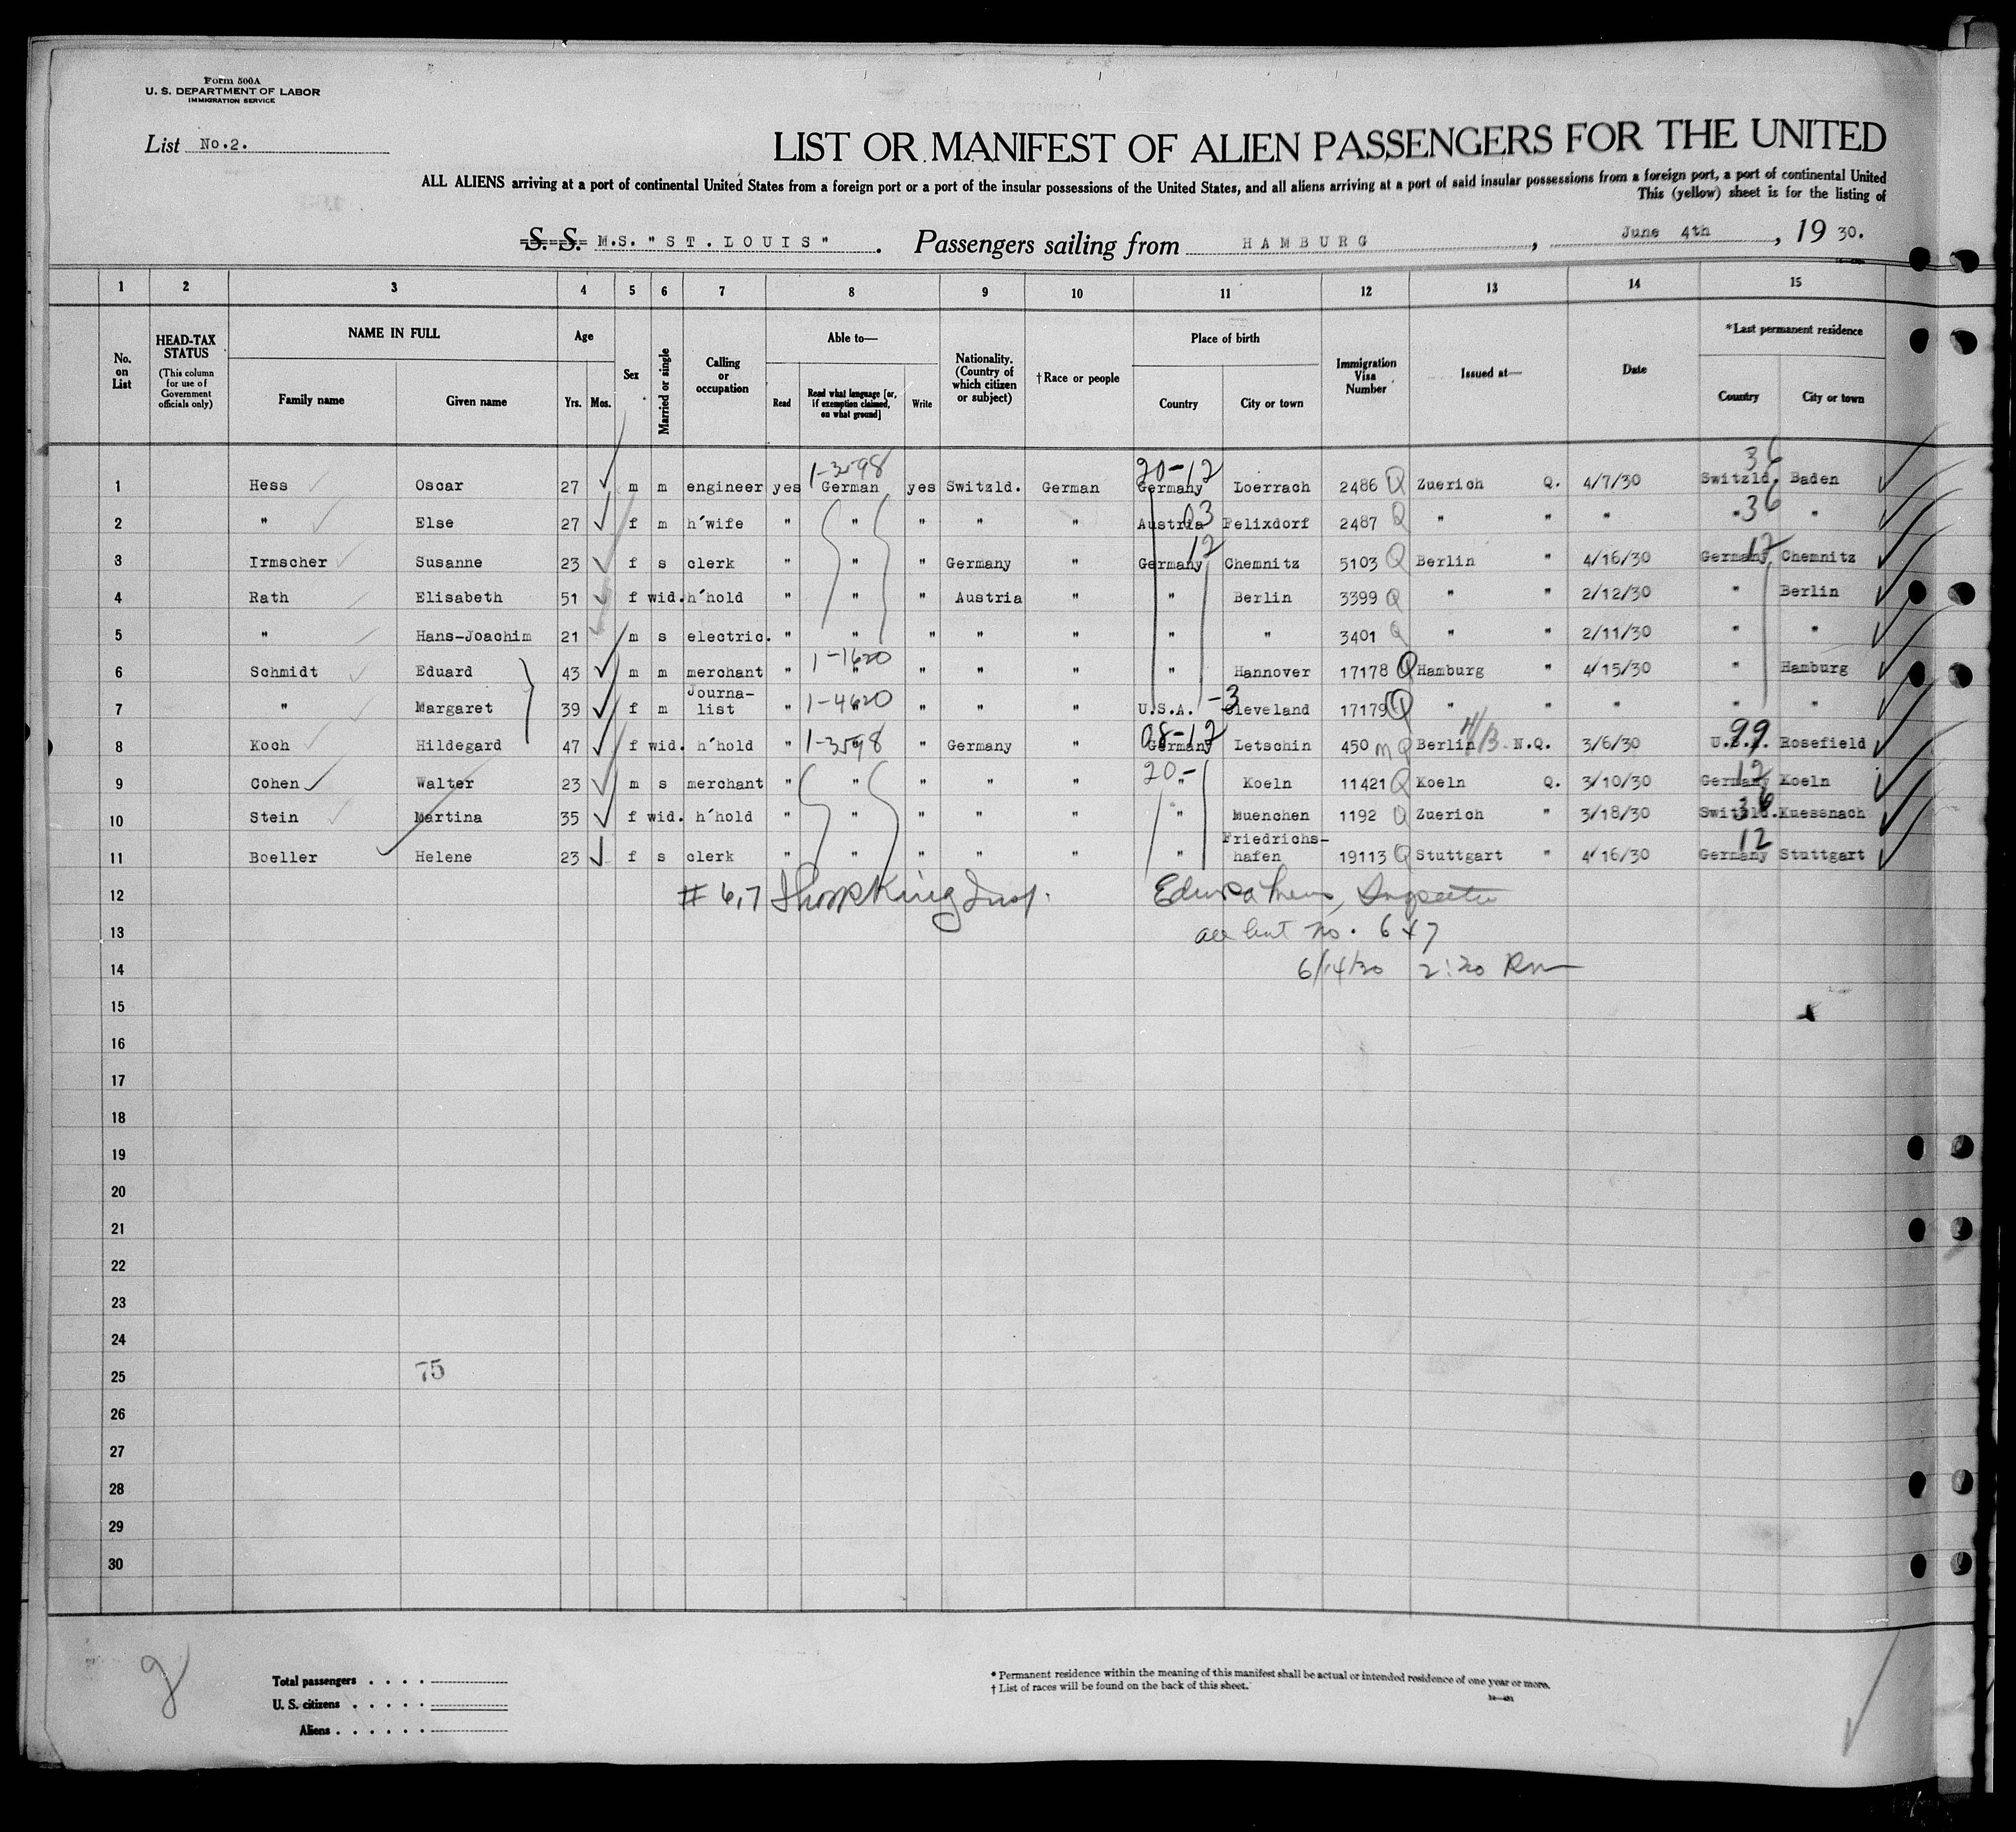 Form 500A
U. S. DEPARTMENT OF LABOR
IMMIGRATION SERVICE
List No.2.
LIST OR MANIFEST OF ALIEN PASSENGERS FOR THE UNITED
ALL ALIENS arriving at a port of continental United States from a foreign port or a port of the insular possessions of the United States, and all aliens arriving at a port of said insular possessions from a foreign port, a port of continental United
This (yellow) sheet is for the listing of
S. S. M.S. "ST.LOUIS". Passengers sailing from HAMBURG, June 4th, 19 30.
1 2 3 4 5 6 7 8 9 10 11 12 13 14 15
No. on List
HEAD-TAX STATUS
(This column for use of Government officials only)
NAME IN FULL
Family name Given name
Age
Yrs. Mos.
Sex
Married or single
Calling or occupation
Able to—
Read
Read what language [or, if exemption claimed, on what ground]
Write
Nationality. (Country of which citizen or subject)
†Race or people
Place of birth
Country City or town
Immigration Visa Number
Issued at—
Date
*Last permanent residence
Country City or town
1-3598 20-12 36
1 Hess Oscar 27 m m engineer yes German yes Switzld. German Germany Loerrach 2486 Q Zuerich Q. 4/7/30 Switzld. Baden
2 " Else 27 f m h'wife " " " " " Austria 03 Felixdorf 2487 Q " " " " 36 "
3 Irmscher Susanne 23 f s clerk " " " Germany " Germany 12 Chemnitz 5103 Q Berlin " 4/16/30 Germany 12 Chemnitz
4 Rath Elisabeth 51 f wid. h'hold " " " Austria " " Berlin 3399 Q " " 2/12/30 " Berlin
5 " Hans-Joachim 21 m s electric. " " " " " " " 3401 Q " " 2/11/30 " "
1-1620
6 Schmidt Eduard 43 m m merchant " " " " " " Hannover 17178 Q Hamburg " 4/15/30 " Hamburg
7 " Margaret 39 f m Journa-
list " 1-4620 " " " " U.S.A. -3 Cleveland 17179 Q " " " " "
8 Koch Hildegard 47 f wid. h'hold " 1-3598 " " Germany " 08-12 Germany Letschin 450 M Q Berlin N.Q. 3/6/30 U.S.A. 99 Rosefield
9 Cohen Walter 23 m s merchant " " " " " 20- " Koeln 11421 Q Koeln Q. 3/10/30 Germany 12 Koeln
10 Stein Martina 35 f wid. h'hold " " " " " " Muenchen 1192 Q Zuerich " 3/18/30 Switzld. 36 Kuessnach
11 Boeller Helene 23 f s clerk " " " " " " Friedrichs-
hafen 19113 Q Stuttgart " 4/16/30 Germany 12 Stuttgart
12 # 6,7 King Insp. Inspector
13 all but no. 6 & 7
14 6/14/30 2:20 Pm
15
16
17
18
19
20
21
22
23
24
25 75
26
27
28
29
30
Total passengers . . . .
U. S. citizens . . . . .
Aliens . . . . . .
* Permanent residence within the meaning of this manifest shall be actual or intended residence of one year or more.
† List of races will be found on the back of this sheet.